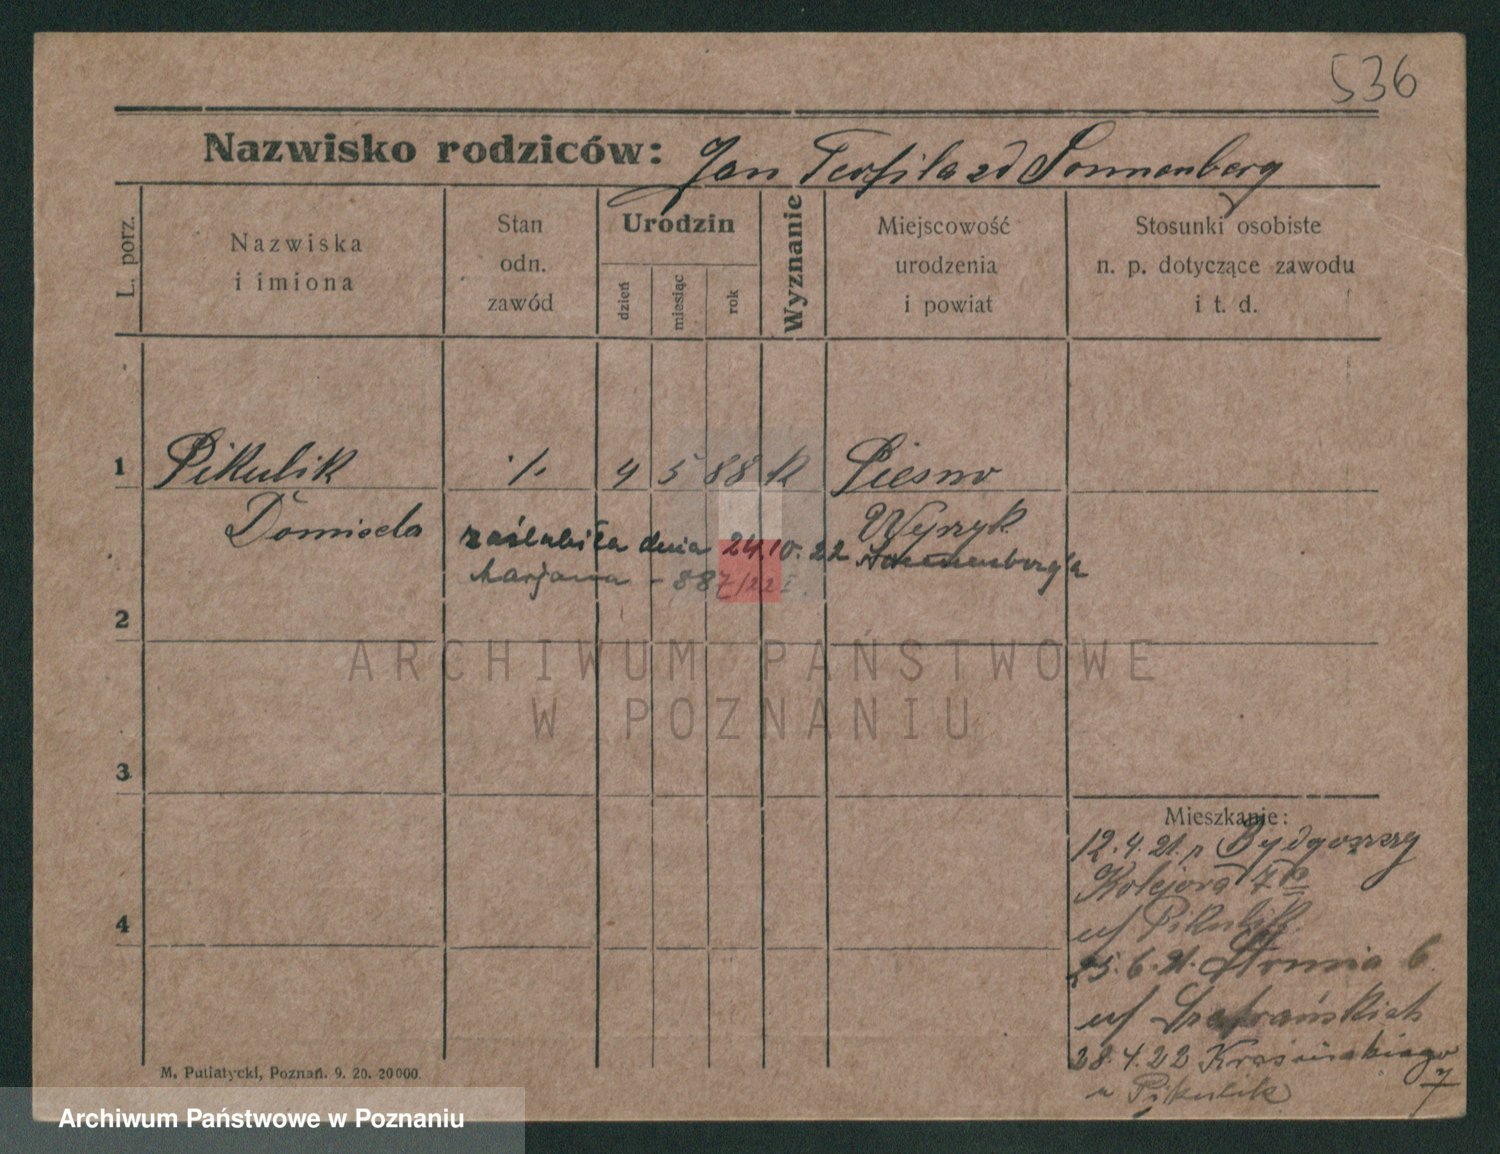 536
Nazwisko rodziców: Jan Teofila zd Sonnenberg
L. porz.
Nazwiska
i imiona
Stan
odn.
zawód
Urodzin
dzień
miesiąc
rok
Wyznanie
Miejscowość
urodzenia
i powiat
Stosunki osobiste
n. p. dotyczące zawodu
i t. d.
1 Pikulik ./. 4 5 88 k Piesno
Domicela Wyrzyk
zaślubiła dnia 24.10.22 Sonnenberg'a
Marjana - 887/22 I.
2
3
4
Mieszkanie:
12.4.21. Bydgoszczy
Kolejowa 7
u/ Pikulik
25.6.21. Słonia 6
u/ Szafrańskich
28.4.22 Krasińskiego
7
u Pikulik
M. Putiatycki, Poznań. 9. 20. 20000.
ARCHIWUM PAŃSTWOWE
W POZNANIU
Archiwum Państwowe w Poznaniu